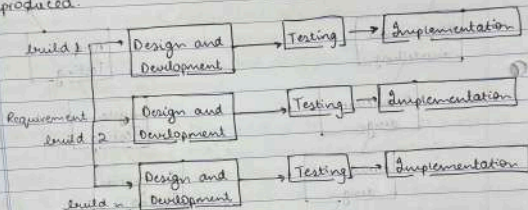 produced.
build 1 Design and Development Testing Implementation
Requirement
build 2 Design and Development Testing Implementation
build n Design and Development Testing Implementation